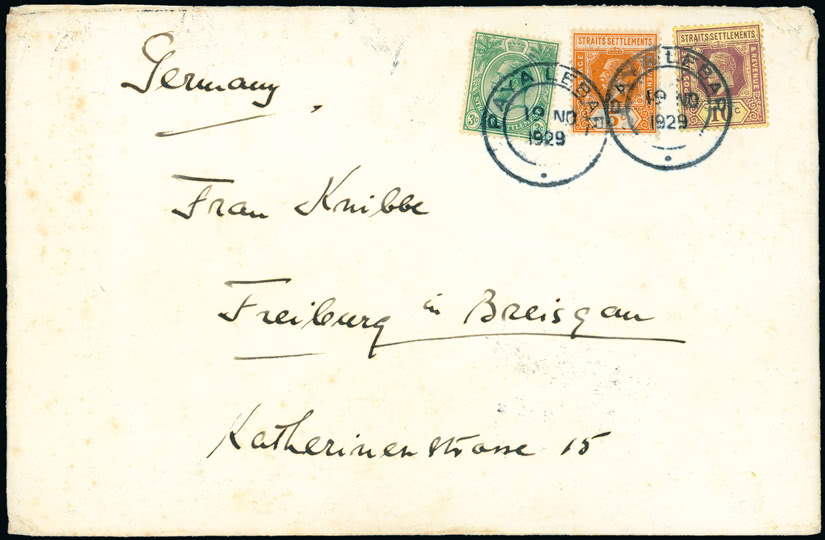 STRAITS SETTLEMENTS
STRAITS SETTLEMENTS
& REVENUE
3c
10 c
PAYA LEBAR
19 NO
1929
PAYA LEBAR
19 NO
1929
Germany,
Frau Knibbe
Freiburg in Breisgau
Katherinenstrasse 15